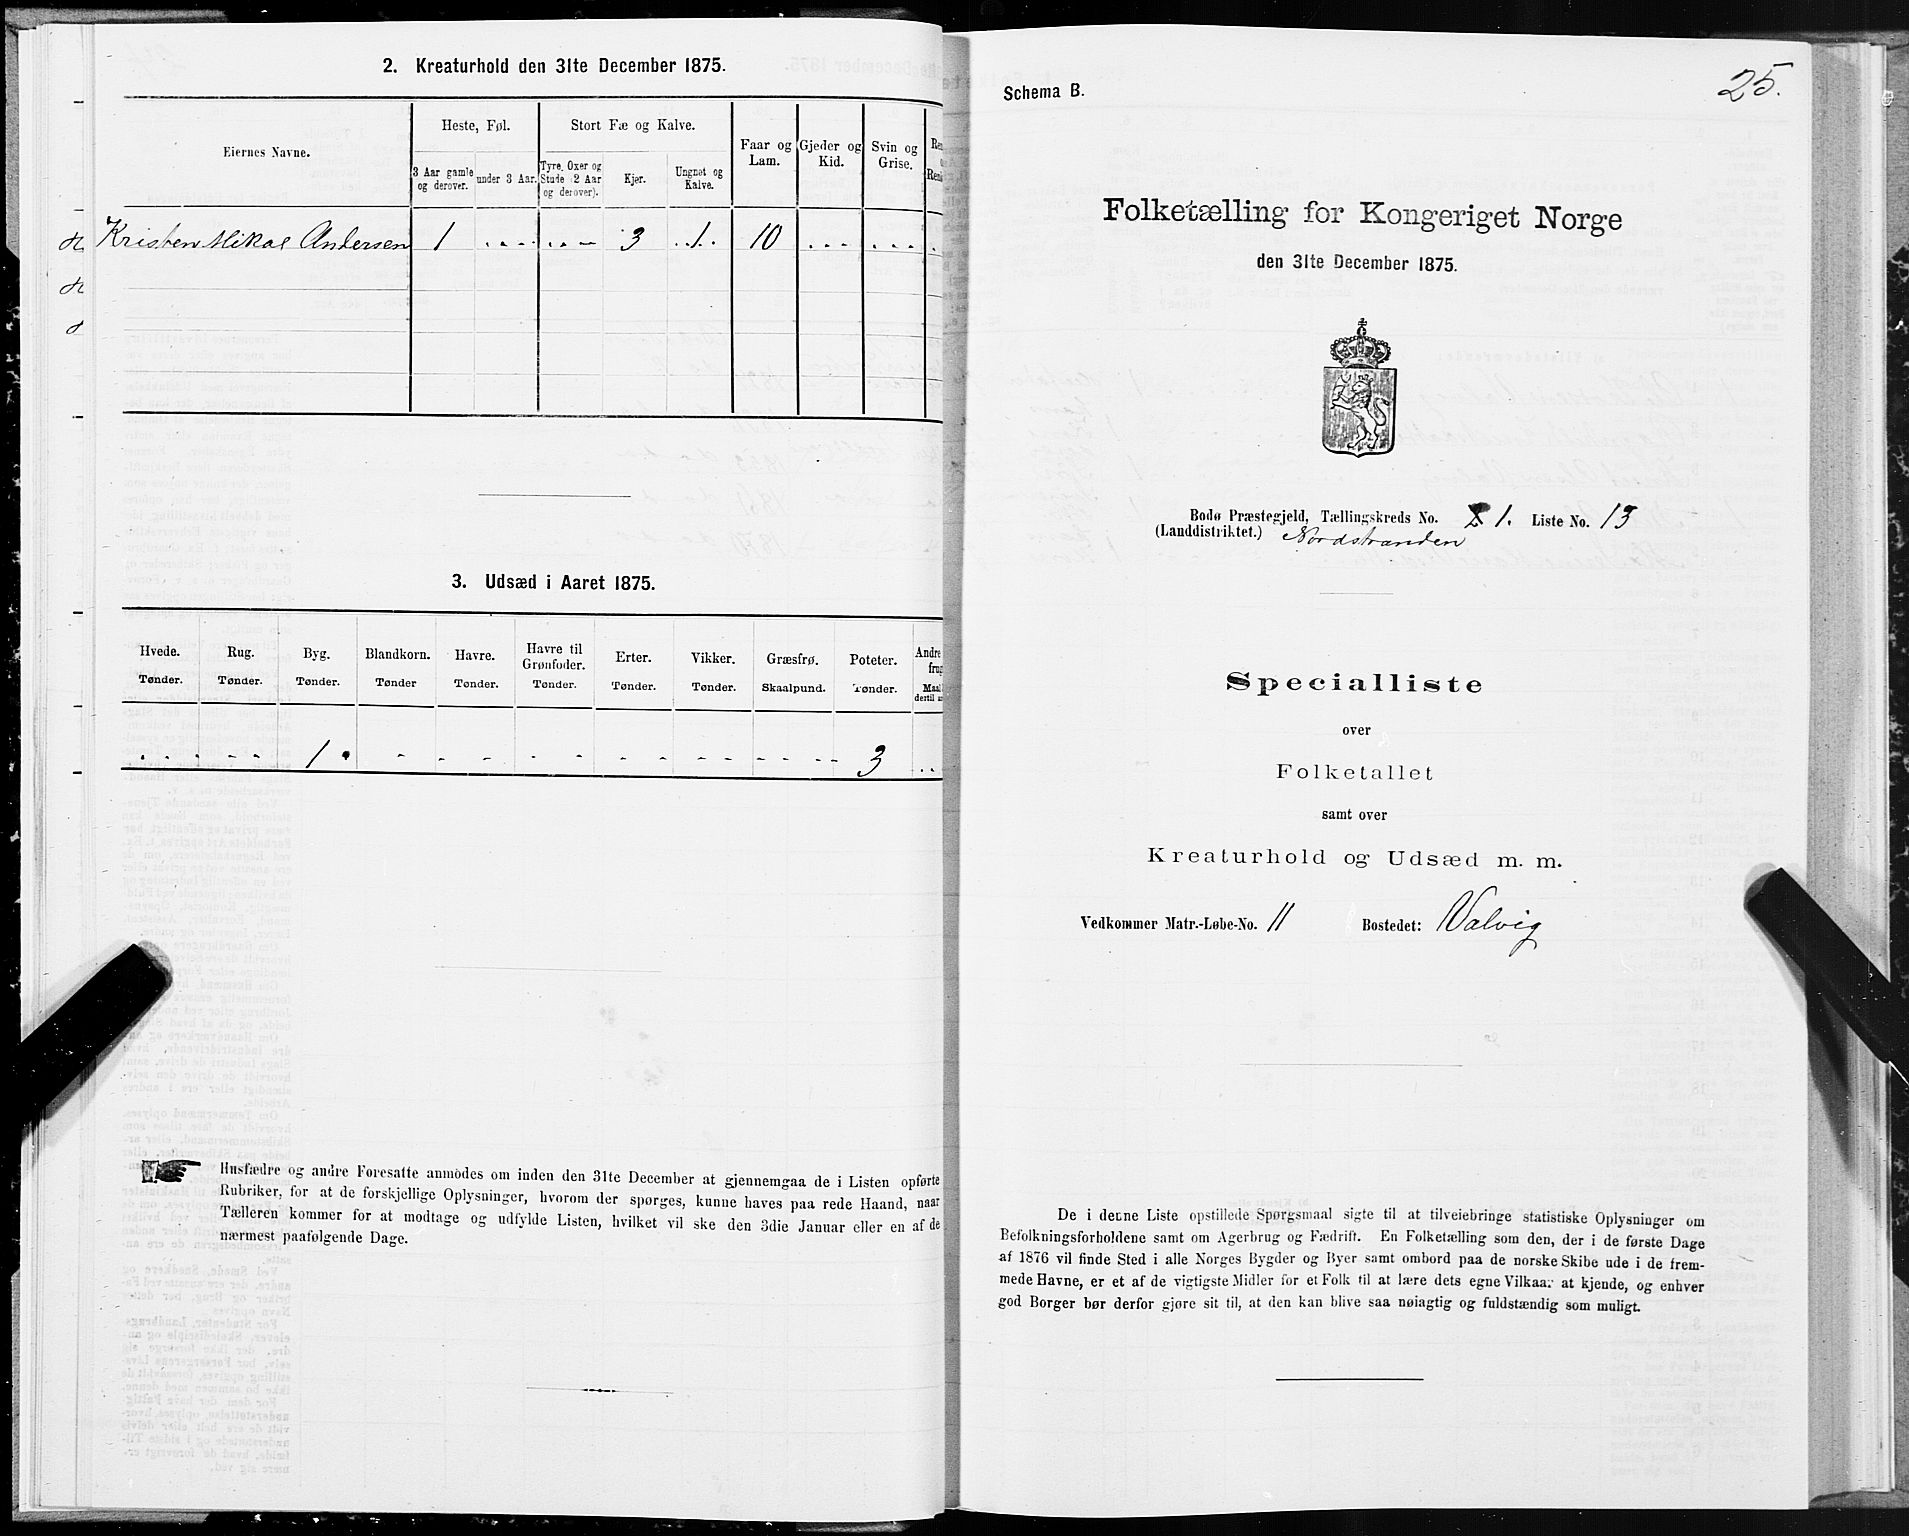 2. Kreaturhold den 31te December 1875.
Eiernes Navne.
Heste, Føl.
Stort Fæ og Kalve.
Faar og Lam.
Gjeder og Kid.
Svin og Grise.
3 Aar gamle og derover.
under 3 Aar.
Tyre, Oxer og Stude (2 Aar og derover).
Kjør.
Ungnøt og Kalve.
Kristen Mikal Andersen 1 . . . . . . 3 . 1 . 10 . . . . . . .
3. Udsæd i Aaret 1875.
Hvede. Rug. Byg. Blandkorn. Havre. Havre til Grønfoder. Erter. Vikker. Græsfrø. Poteter. Andre
Tønder. Tønder. Tønder. Tønder Tønder. Tønder. Tønder. Tønder. Skaalpund. Tønder.
. . . - - - 1 . - - - - - - - - - - - - 3 . .
Husfædre og andre Foresatte anmodes om inden den 31te December at gjennemgaa de i Listen opførte
Rubriker, for at de forskjellige Oplysninger, hvorom der spørges, kunne haves paa rede Haand, naar
Tælleren kommer for at modtage og udfylde Listen, hvilket vil ske den 3die Januar eller en af de
nærmest paafølgende Dage.
25.
Schema B.
Folketælling for Kongeriget Norge
den 31te December 1875.
Bodø Præstegjeld, Tællingskreds No. 1. Liste No. 13
(Landdistriktet.) Nordstranden
Specialliste
over
Folketallet
samt over
Kreaturhold og Udsæd m. m.
Vedkommer Matr.-Løbe-No. 11 Bostedet: Valvig
De i denne Liste opstillede Spørgsmaal sigte til at tilveiebringe statistiske Oplysninger om
Befolkningsforholdene samt om Agerbrug og Fædrift. En Folketælling som den, der i de første Dage
af 1876 vil finde Sted i alle Norges Bygder og Byer samt ombord paa de norske Skibe ude i de frem-
mede Havne, er et af de vigtigste Midler for et Folk til at lære dets egne Vilkaar at kjende, og enhver
god Borger bør derfor gjøre sit til, at den kan blive saa nøiagtig og fuldstændig som muligt.